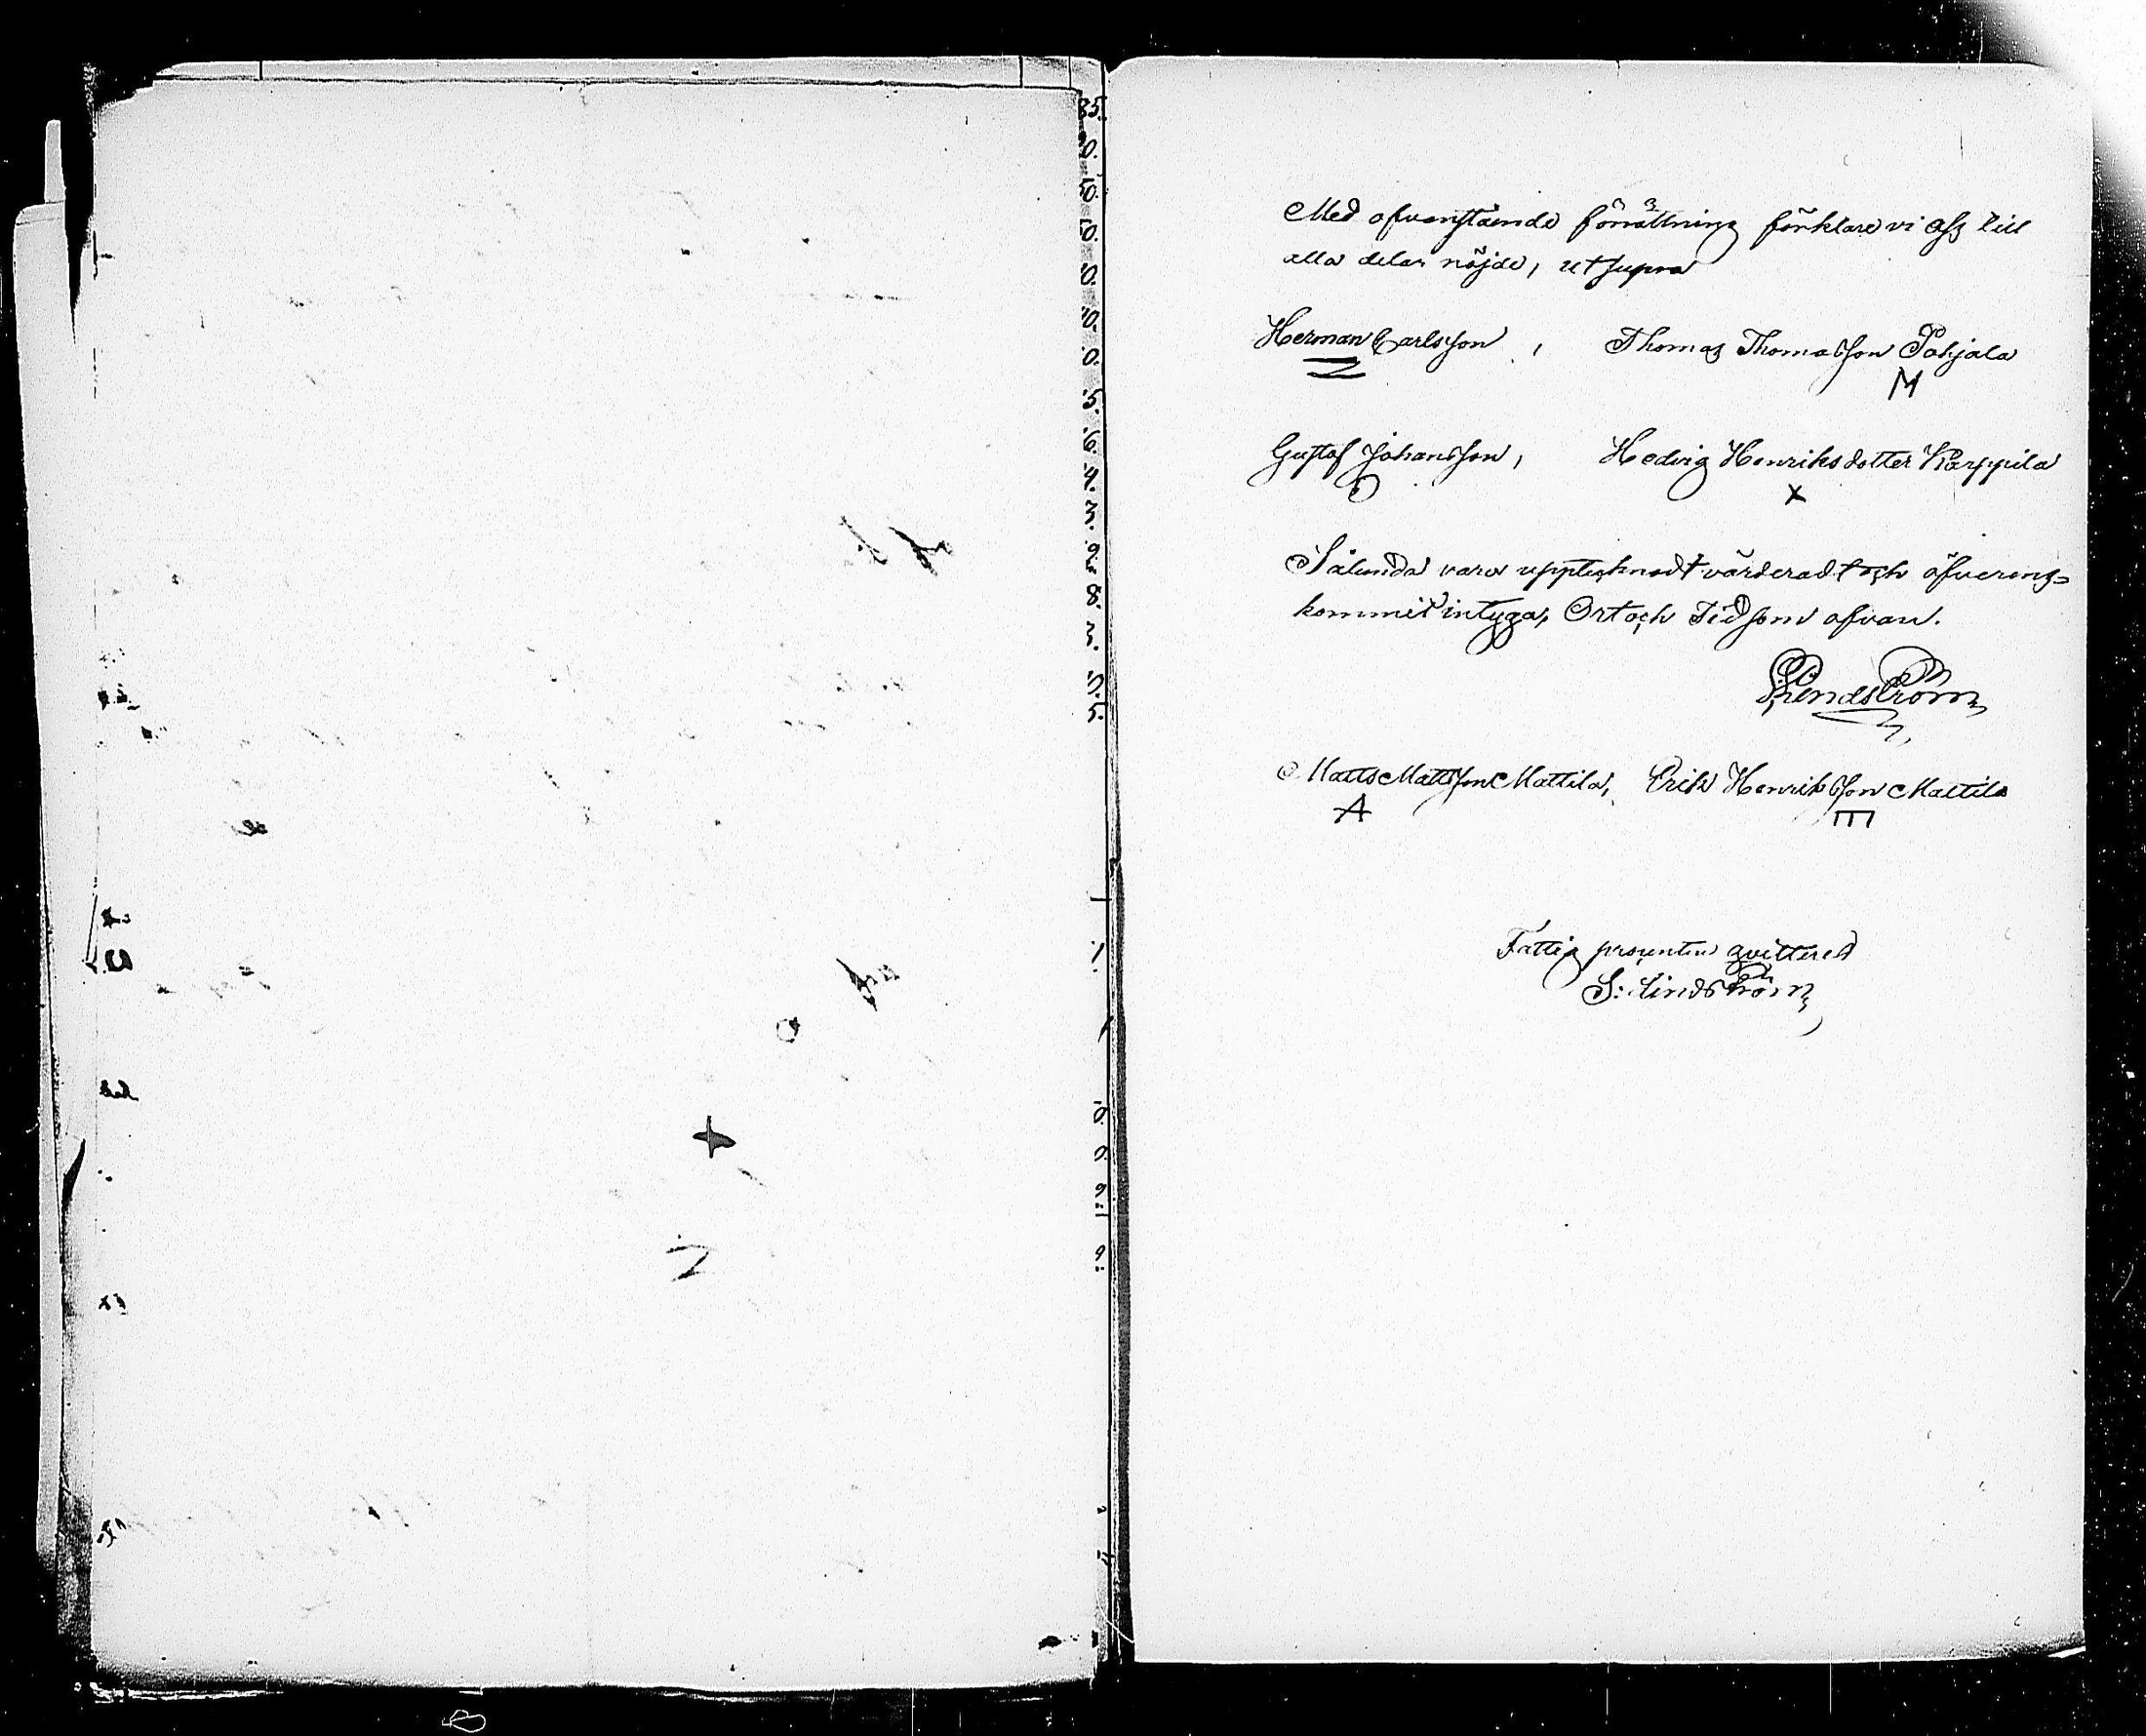 Med ofvanstående förrättning förklare vi oss till
alla delar nöjde, ut supra
Herman Carlsson, Thomas Thomasson Pohjala
M
Gustaf Johansson, Hedvig Henriksdotter Karppila
X
Sålunda vara upptecknadt värderadt och öfverens=
kommit intyga, Ort och Tid som ofvan.
S: Lindström
Matts Mattsson Mattila, Erik Henriksson Mattila
A III
Fattig procenten qvitteras
S: Lindström